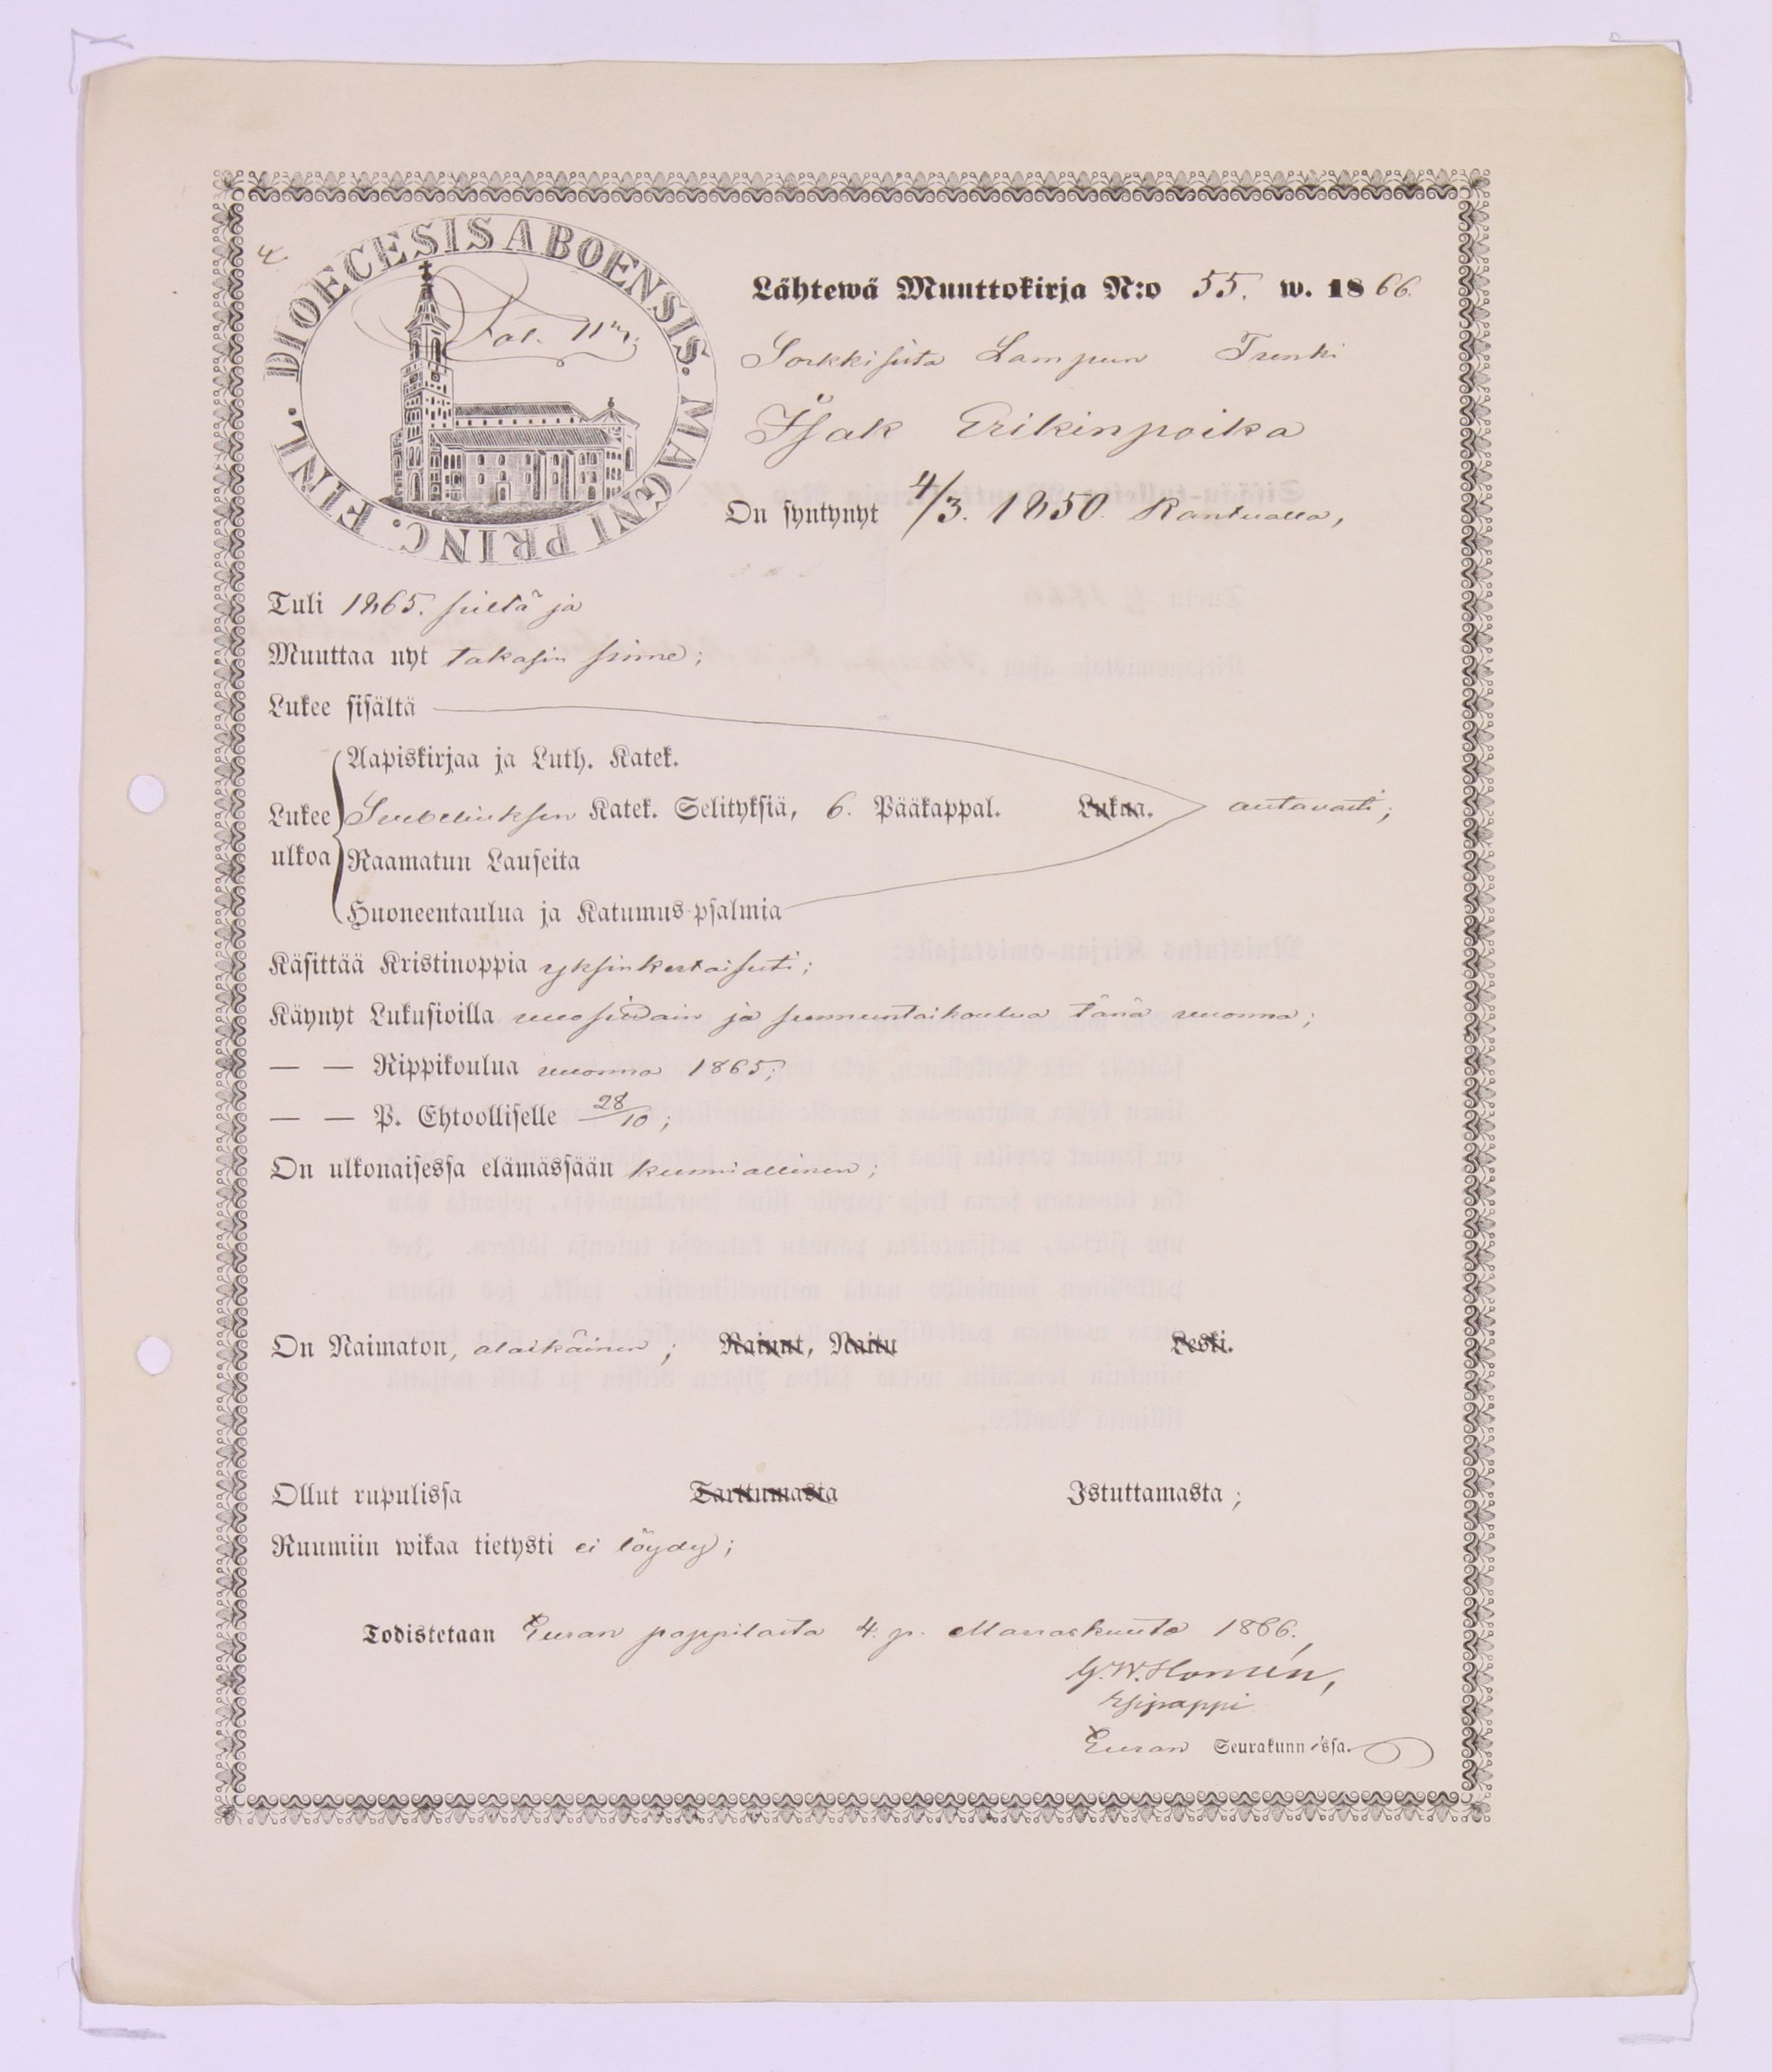 DIOECESIS ABOENSIS. MAGNI PRINC. FINL.
Lähtewä Muuttokirja N:o 55. w. 1866.
Sorkkisista Lampun Trenki
Isak Erikinpoika
On syntynyt 4/3. 1850.
Tuli 1865. sieltä ja
Muuttaa nyt takasin sinne;
Lukee sisältä
Aapiskirjaa ja Luth. Katek.
Lukee ulkoa Svebeliuksen Katek. Selityksiä, 6. Pääkappal. Lukua. auttavasti;
Raamatun Lauseita
Huoneentaulua ja Katumus-psalmia
Käsittää Kristinoppia yksinkertaisesti;
Käynyt Lukusioilla vuosittain ja sunnuntaikoulua tänä vuonna;
— — Rippikoulua vuonna 1865;
— — P. Ehtoolliselle 28/10;
On ulkonaisessa elämässään kunniallinen;
On Naimaton, alaikäinen; Nainut, Naitu Leski.
Ollut rupulissa Tarttumasta Istuttamasta;
Ruumiin wikaa tietysti ei löydy;
Todistetaan Euran pappilasta 4. p. Marraskuuta 1866.
G. W. Homén,
Esipappi
Euran Seurakunnissa.